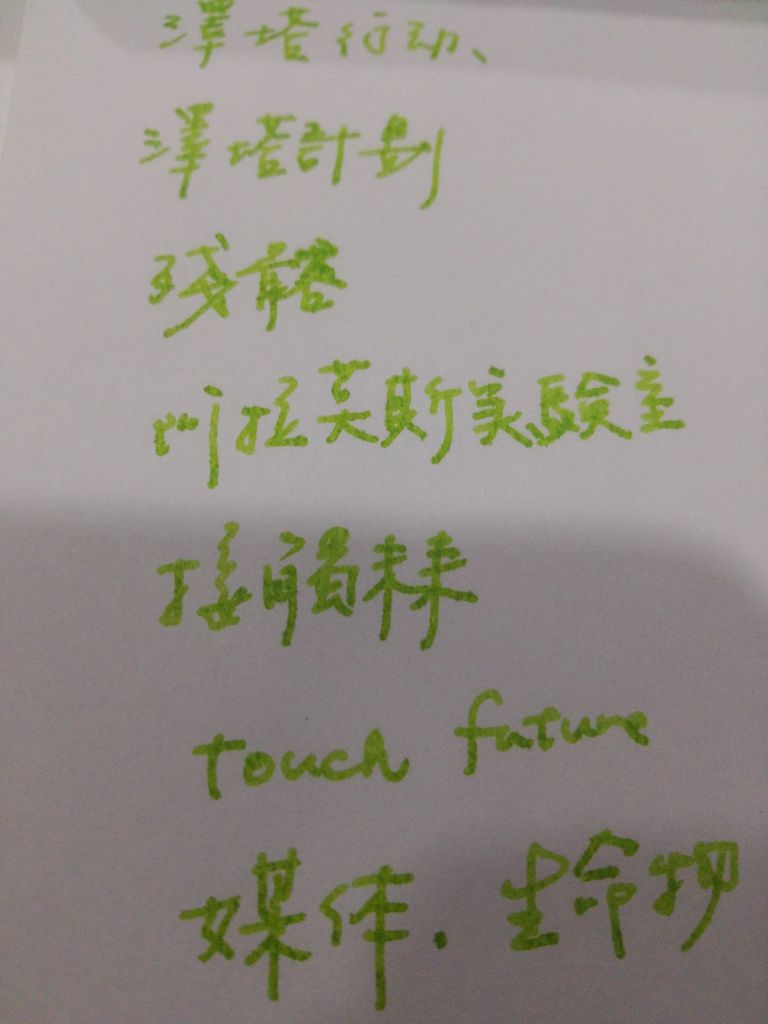 澤塔行动、
澤塔計劃
残骸
阿拉莫斯実験室
接觸未来
touch future
媒体．生命物